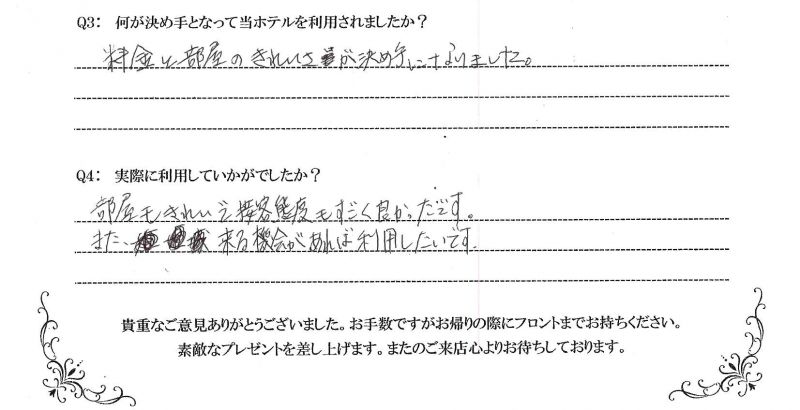 Q3: 何が決め手となって当ホテルを利用されましたか?
料金と部屋のきれいさが決め手になりました。
Q4: 実際に利用していかがでしたか?
部屋もきれいで接客態度もすごく良かったです。
また、来る機会があれば利用したいです。
貴重なご意見ありがとうございました。お手数ですがお帰りの際にフロントまでお持ちください。
素敵なプレゼントを差し上げます。またのご来店心よりお待ちしております。